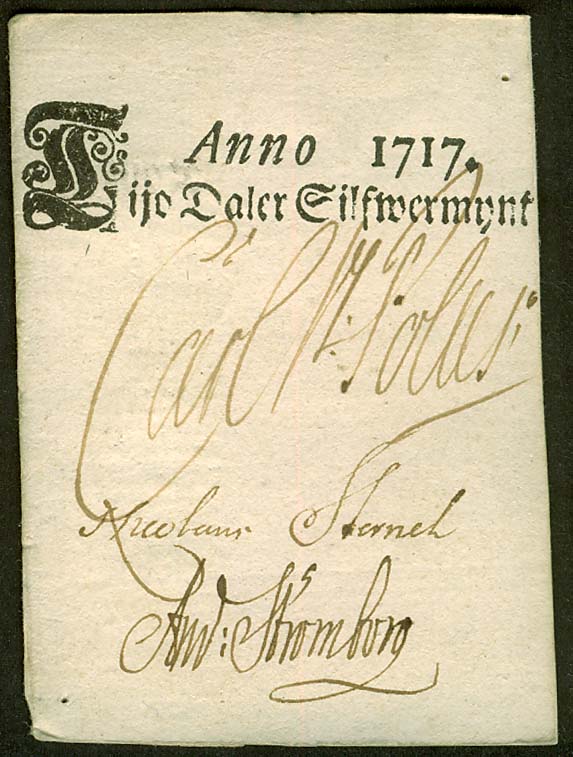 Anno 1717.
Tijo Daler Silfwermynt
Carl
Nicolaus Sternel
And: Strömborg